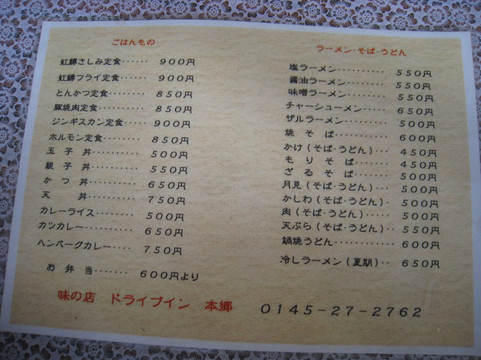 ごはんもの
紅鱒さしみ定食‥‥ 900円
紅鱒フライ定食‥‥ 900円
とんかつ定食‥‥‥ 850円
豚焼肉定食‥‥‥‥ 850円
ジンギスカン定食‥‥ 900円
ホルモン定食‥‥‥ 850円
玉子丼‥‥‥‥ 500円
親子丼‥‥‥‥ 550円
かつ丼‥‥‥‥ 650円
天丼‥‥‥‥ 750円
カレーライス‥‥‥ 500円
カツカレー‥‥‥‥ 650円
ハンバークカレー‥‥ 750円
お弁当‥‥‥‥ 600円より
ラーメン・そば・うどん
塩ラーメン‥‥‥‥ 550円
醤油ラーメン‥‥‥ 550円
味噌ラーメン‥‥‥ 550円
チャーシューメン‥‥ 650円
ザルラーメン‥‥‥ 500円
焼そば‥‥‥‥ 600円
かけ(そば・うどん)‥ 450円
もりそば‥‥‥ 450円
ざるそば‥‥‥ 500円
月見(そば・うどん)‥ 500円
かしわ(そば・うどん)‥ 500円
肉(そば・うどん)‥‥ 550円
天ぷら(そば・うどん)‥ 550円
鍋焼うどん‥‥‥‥ 600円
冷しラーメン(夏期)‥ 650円
味の店 ドライブイン 本郷 0145-27-2762